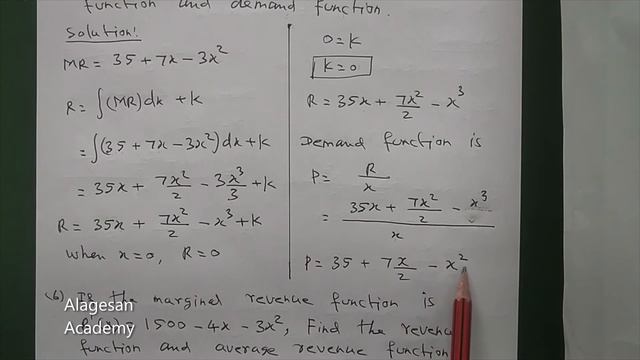 function and demand function.
Solution!
MR = 35 + 7x - 3x²
R = ∫(MR)dx + k
= ∫(35 + 7x - 3x²)dx + k
= 35x + 7x²/2 - 3x³/3 + k
R = 35x + 7x²/2 - x³ + k
when x=0, R=0
0=k
k=0
R = 35x + 7x²/2 - x³
Demand function is
P = R/x
= (35x + 7x²/2 - x³)/x
P = 35 + 7x/2 - x²
(6) If the marginal revenue function is
1500 - 4x - 3x², Find the revenue
function and average revenue function
Alagesan
Academy